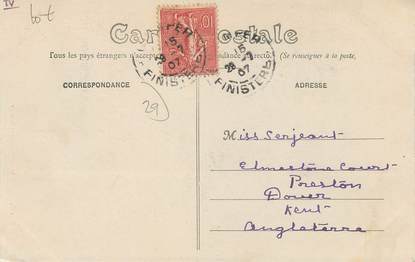 IV
Carte Postale
Tous les pays étrangers n'acceptent pas la correspondance au recto. (Se renseigner à la poste,
CORRESPONDANCE
ADRESSE
29
Miss Serjeant
Elmestone Court
Preston
Dover
Kent
Angleterre
10
FINISTERE
FINISTERE